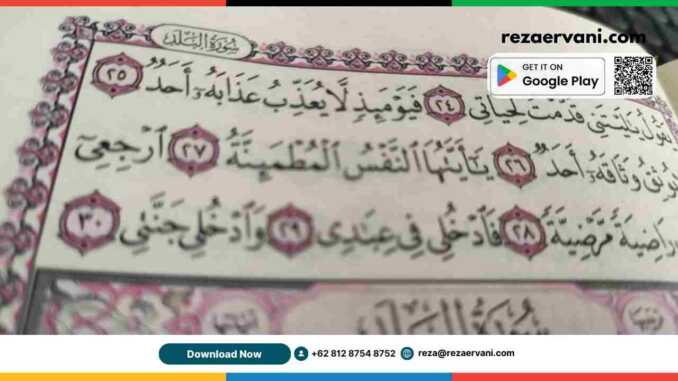 rezaervani.com
GET IT ON
Google Play
سُورَةُ البَلَدِ
يَقُولُ يَٰلَيْتَنِي قَدَّمْتُ لِحَيَاتِي ٢٤ فَيَوْمَئِذٍ لَّا يُعَذِّبُ عَذَابَهُۥٓ أَحَدٌ ٢٥
يُوثِقُ وَثَاقَهُۥٓ أَحَدٌ ٢٦ يَٰٓأَيَّتُهَا النَّفْسُ الْمُطْمَئِنَّةُ ٢٧ ارْجِعِيٓ
رَاضِيَةً مَّرْضِيَّةً ٢٨ فَادْخُلِي فِي عِبَٰدِي ٢٩ وَادْخُلِي جَنَّتِي ٣٠
سُورَةُ البَلَدِ
Download Now
+62 812 8754 8752
reza@rezaervani.com